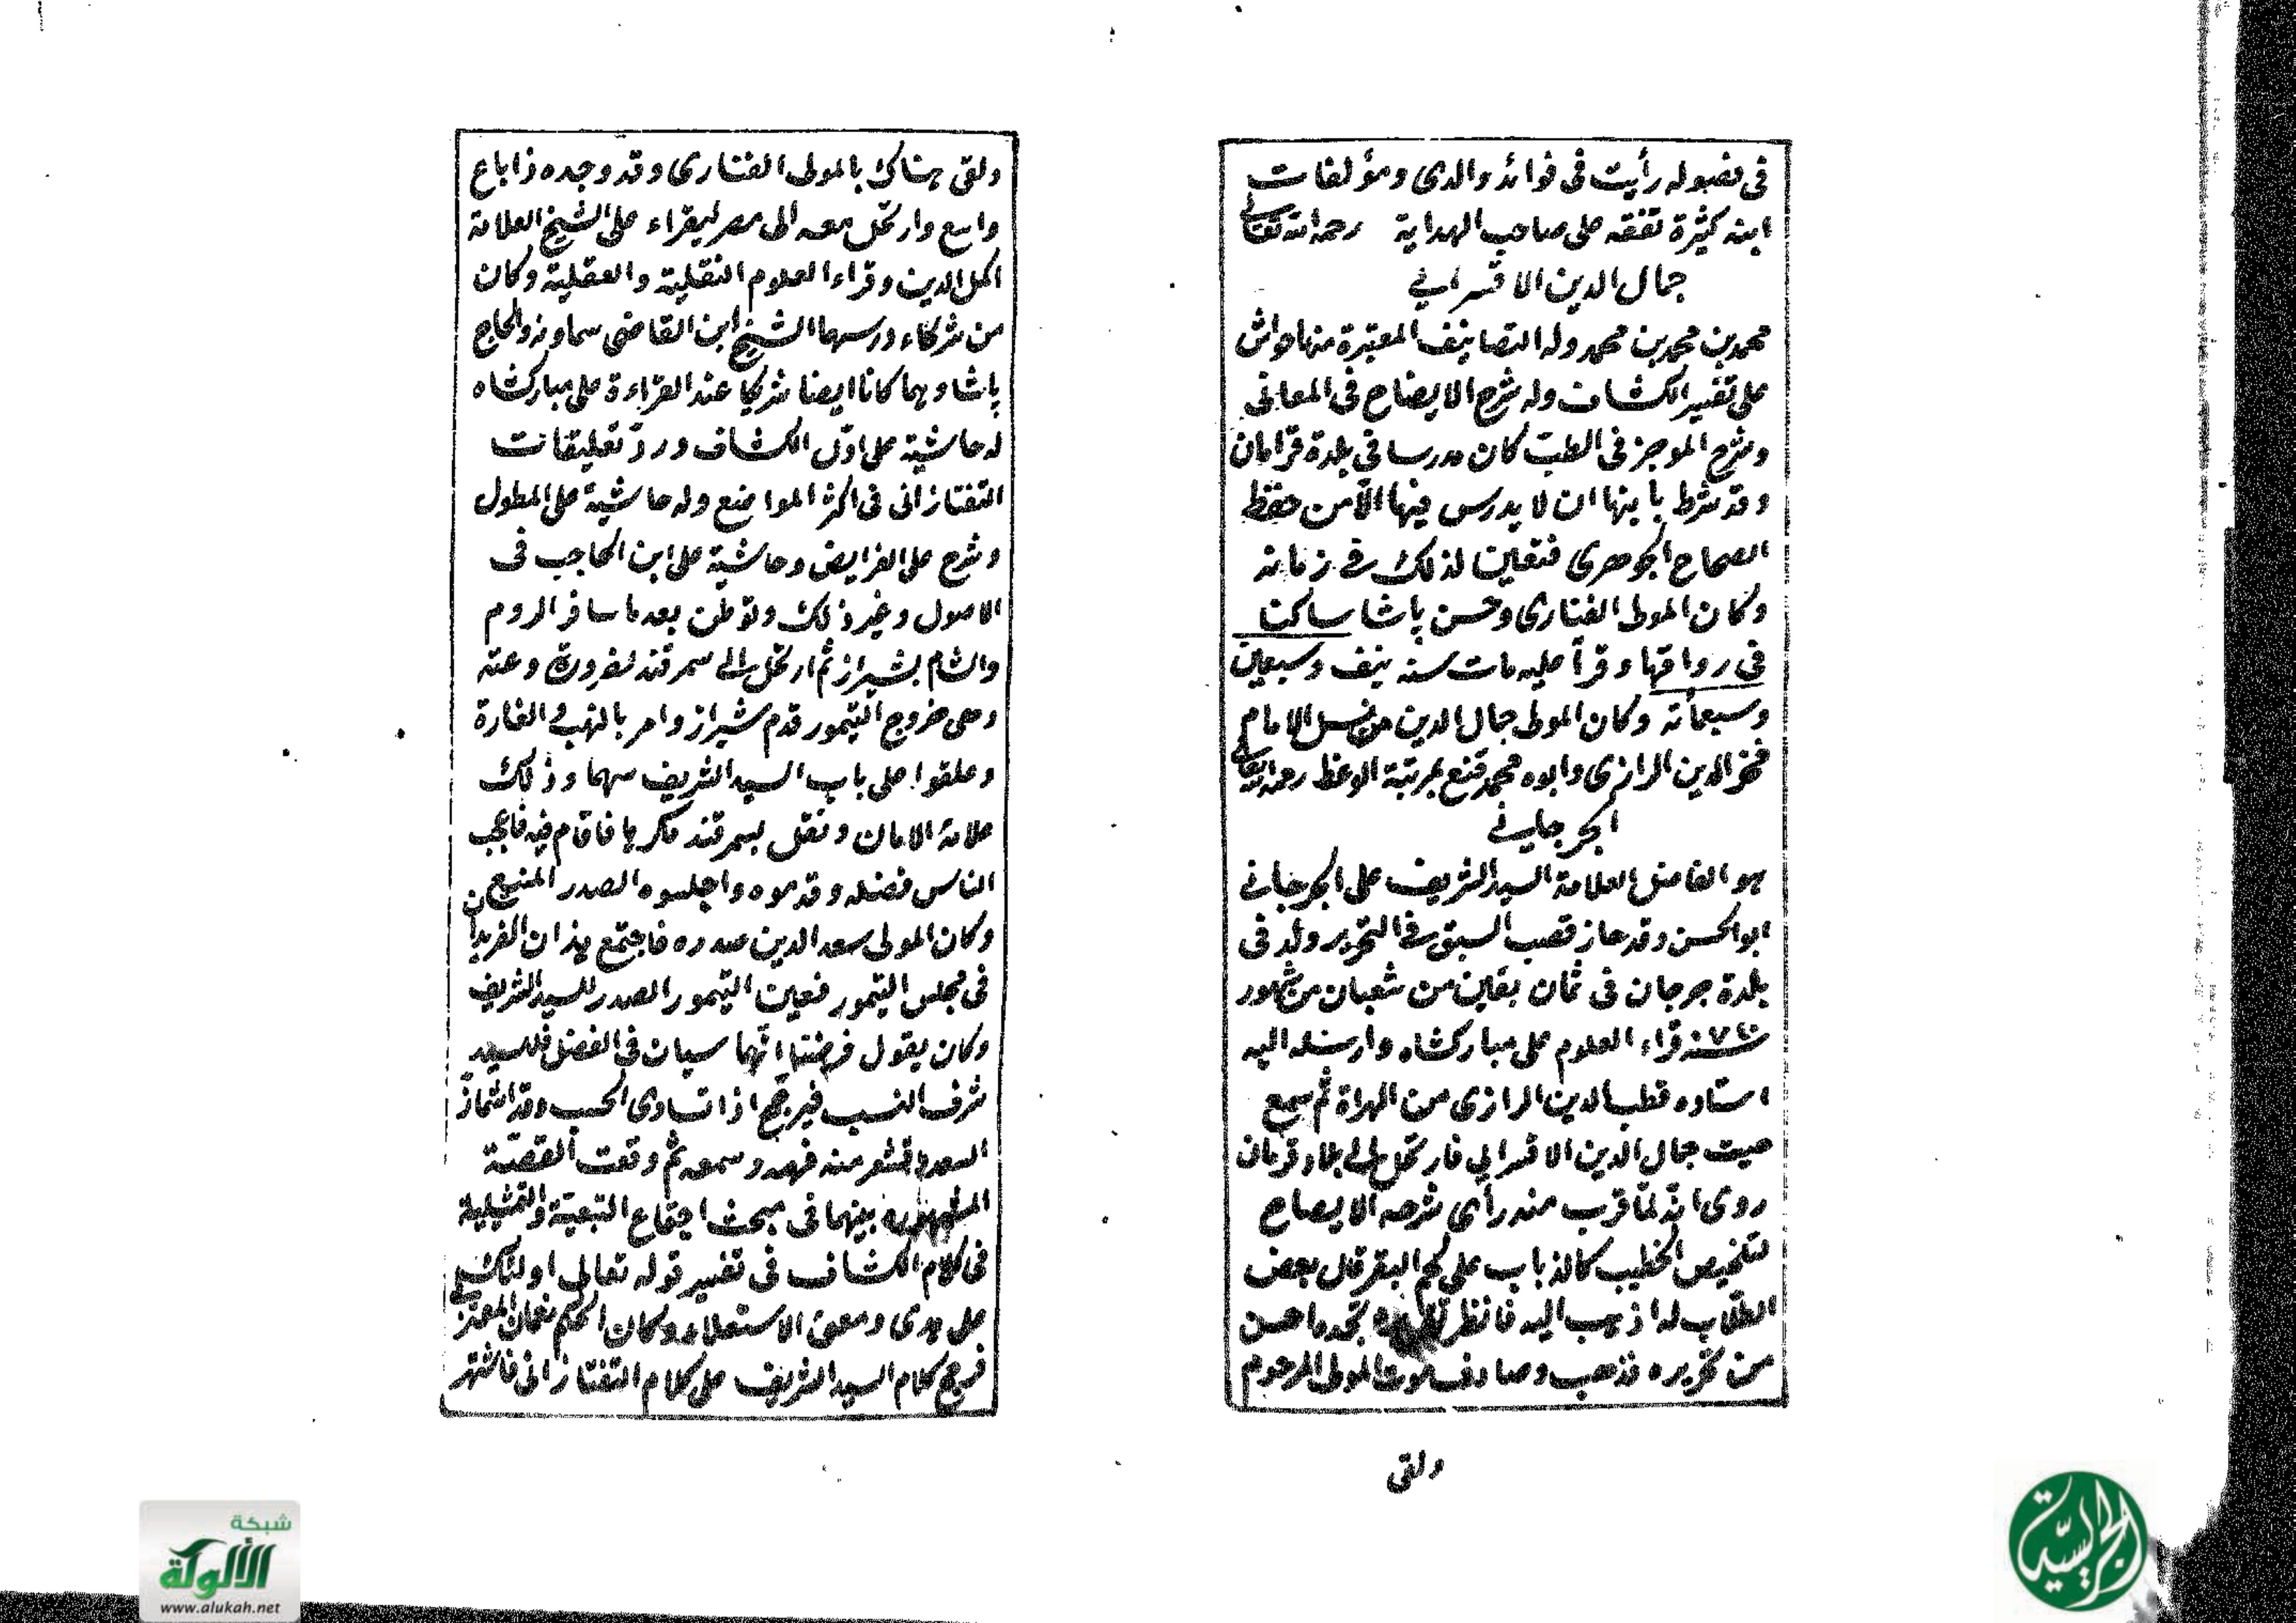 فى فصوله رأيت فى فوائد والدى ومؤلفات
ابنه كثيرة تفقه على صاحب الهداية رحمه الله تعالى
جمال الدين الاقسرايى
محمد بن محمد بن محمد وله التصانيف المعتبرة منها حواش
على تفسير الكشاف وله شرح الايضاح فى المعانى
وشرح الموجز فى الطب كان مدرسا فى بلدة قرامان
وقد شرط بانيها ان لا يدرس فيها الا من حفظ
الصحاح الجوهرى فتعين لذلك فى زمانه
وكان المولى الفنارى وحسن پاشا ساكن
فى رواقها وقرأ عليه مات سنة نيف وسبعين
وسبعمائة وكان المولى جمال الدين من نسل الامام
فخر الدين الرازى وابوه محمد قنع بمرتبة الوعظ رحمه الله تعالى
الجرجانى
هو الفاضل العلامة السيد الشريف على الجرجانى
ابو الحسن وقد حاز قصب السبق فى التحرير ولد فى
بلدة جرجان فى ثمان بقين من شعبان من شهور
سنة قراء العلوم على مباركشاه وارسله اليه
استاده قطب الدين الرازى من الهراة ثم سمع
صيت جمال الدين الاقسرايى فارتحل الى بلاد قرمان
روى انه لما قرب منه رأى شرحه الايضاح
لتلخيص الخطيب كالذباب على لحم البقر قال بعض
الطلاب له اذهب اليه فانظر تجد ما حسن
من تحريره فذهب وصادف موت المولى المرحوم
ولقى
ولقى هناك بالمولى الفنارى وقد وجده ذا باع
واسع وارتحل معه الى مصر ليقراء على الشيخ العلامة
اكمل الدين وقراء العلوم النقلية والعقلية وكان
من شركاء درسهما الشيخ ابن القاضى سماونه والحاج
پاشا وهما كانا ايضا شريكا عند القراءة على مباركشاه
له حاشية على اول الكشاف ورد تعليقات
التفتازانى فى اكثر المواضع وله حاشية على المطول
وشرح على الفرايض وحاشية على ابن الحاجب فى
الاصول وغير ذلك وتوطن بعد ما سافر الروم
والشام بشيراز ثم ارتحل الى سمرقند لضرورة دعته
وهى خروج التيمور قدم شيراز وامر بالنهب والغارة
وعلقوا على باب السيد الشريف سهما وذلك
علامة الامان ونقل بسمرقند مكرما فاقام فيه فاعجب
الناس فضله وقدموه واجلسوه الصدر المنيع
وكان المولى سعد الدين صدره فاجتمع هذان الفريدان
فى مجلس التيمور فعين التيمور الصدر للسيد الشريف
وكان يقول فرضنا انهما سيان فى الفضل فللسيد
شرف النسب فيرجح اذا تساوى الحسب وقد اشمأز
السعد واقشعر منه فهمه وسمعه ثم وقعت القصة
المشهورة بينهما فى مبحث اجتماع التبعية والتمثيلية
فى كلام الكشاف فى تفسير قوله تعالى اولئك
على هدى ومعنى الاستعلاء وكان الحكم نعمان المعتز
فرجح كلام السيد الشريف على كلام التفتازانى فاشتهر
شبكة
الألوكة
www.alukah.net